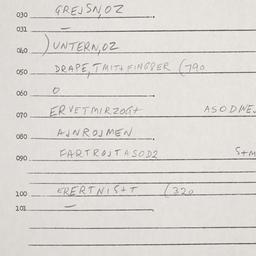 030 GREJSN,OZ
031 —
040 )UNTERN,OZ
050 DRAPE,TMIT+FINGDER (790
060 O
070 ERVETMIRZOG+ ASODWE
080 AJNROJMEN
090 FARTROJTASODZ S+M
100 ERERTNIS+T (320
101 —